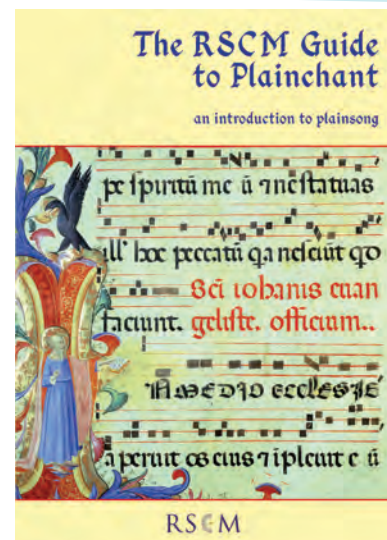 The RSCM Guide
to Plainchant
an introduction to plainsong
pe spiritū me ū ⁊ ne statuas
ill' hoc peccatū qa nesciūt qd
Sc̄i iohanis euan
faciunt. geliste. officium..
N MEDIO ECCLESIE
a peruit os eius ⁊ ipleuit e ū
RSCM